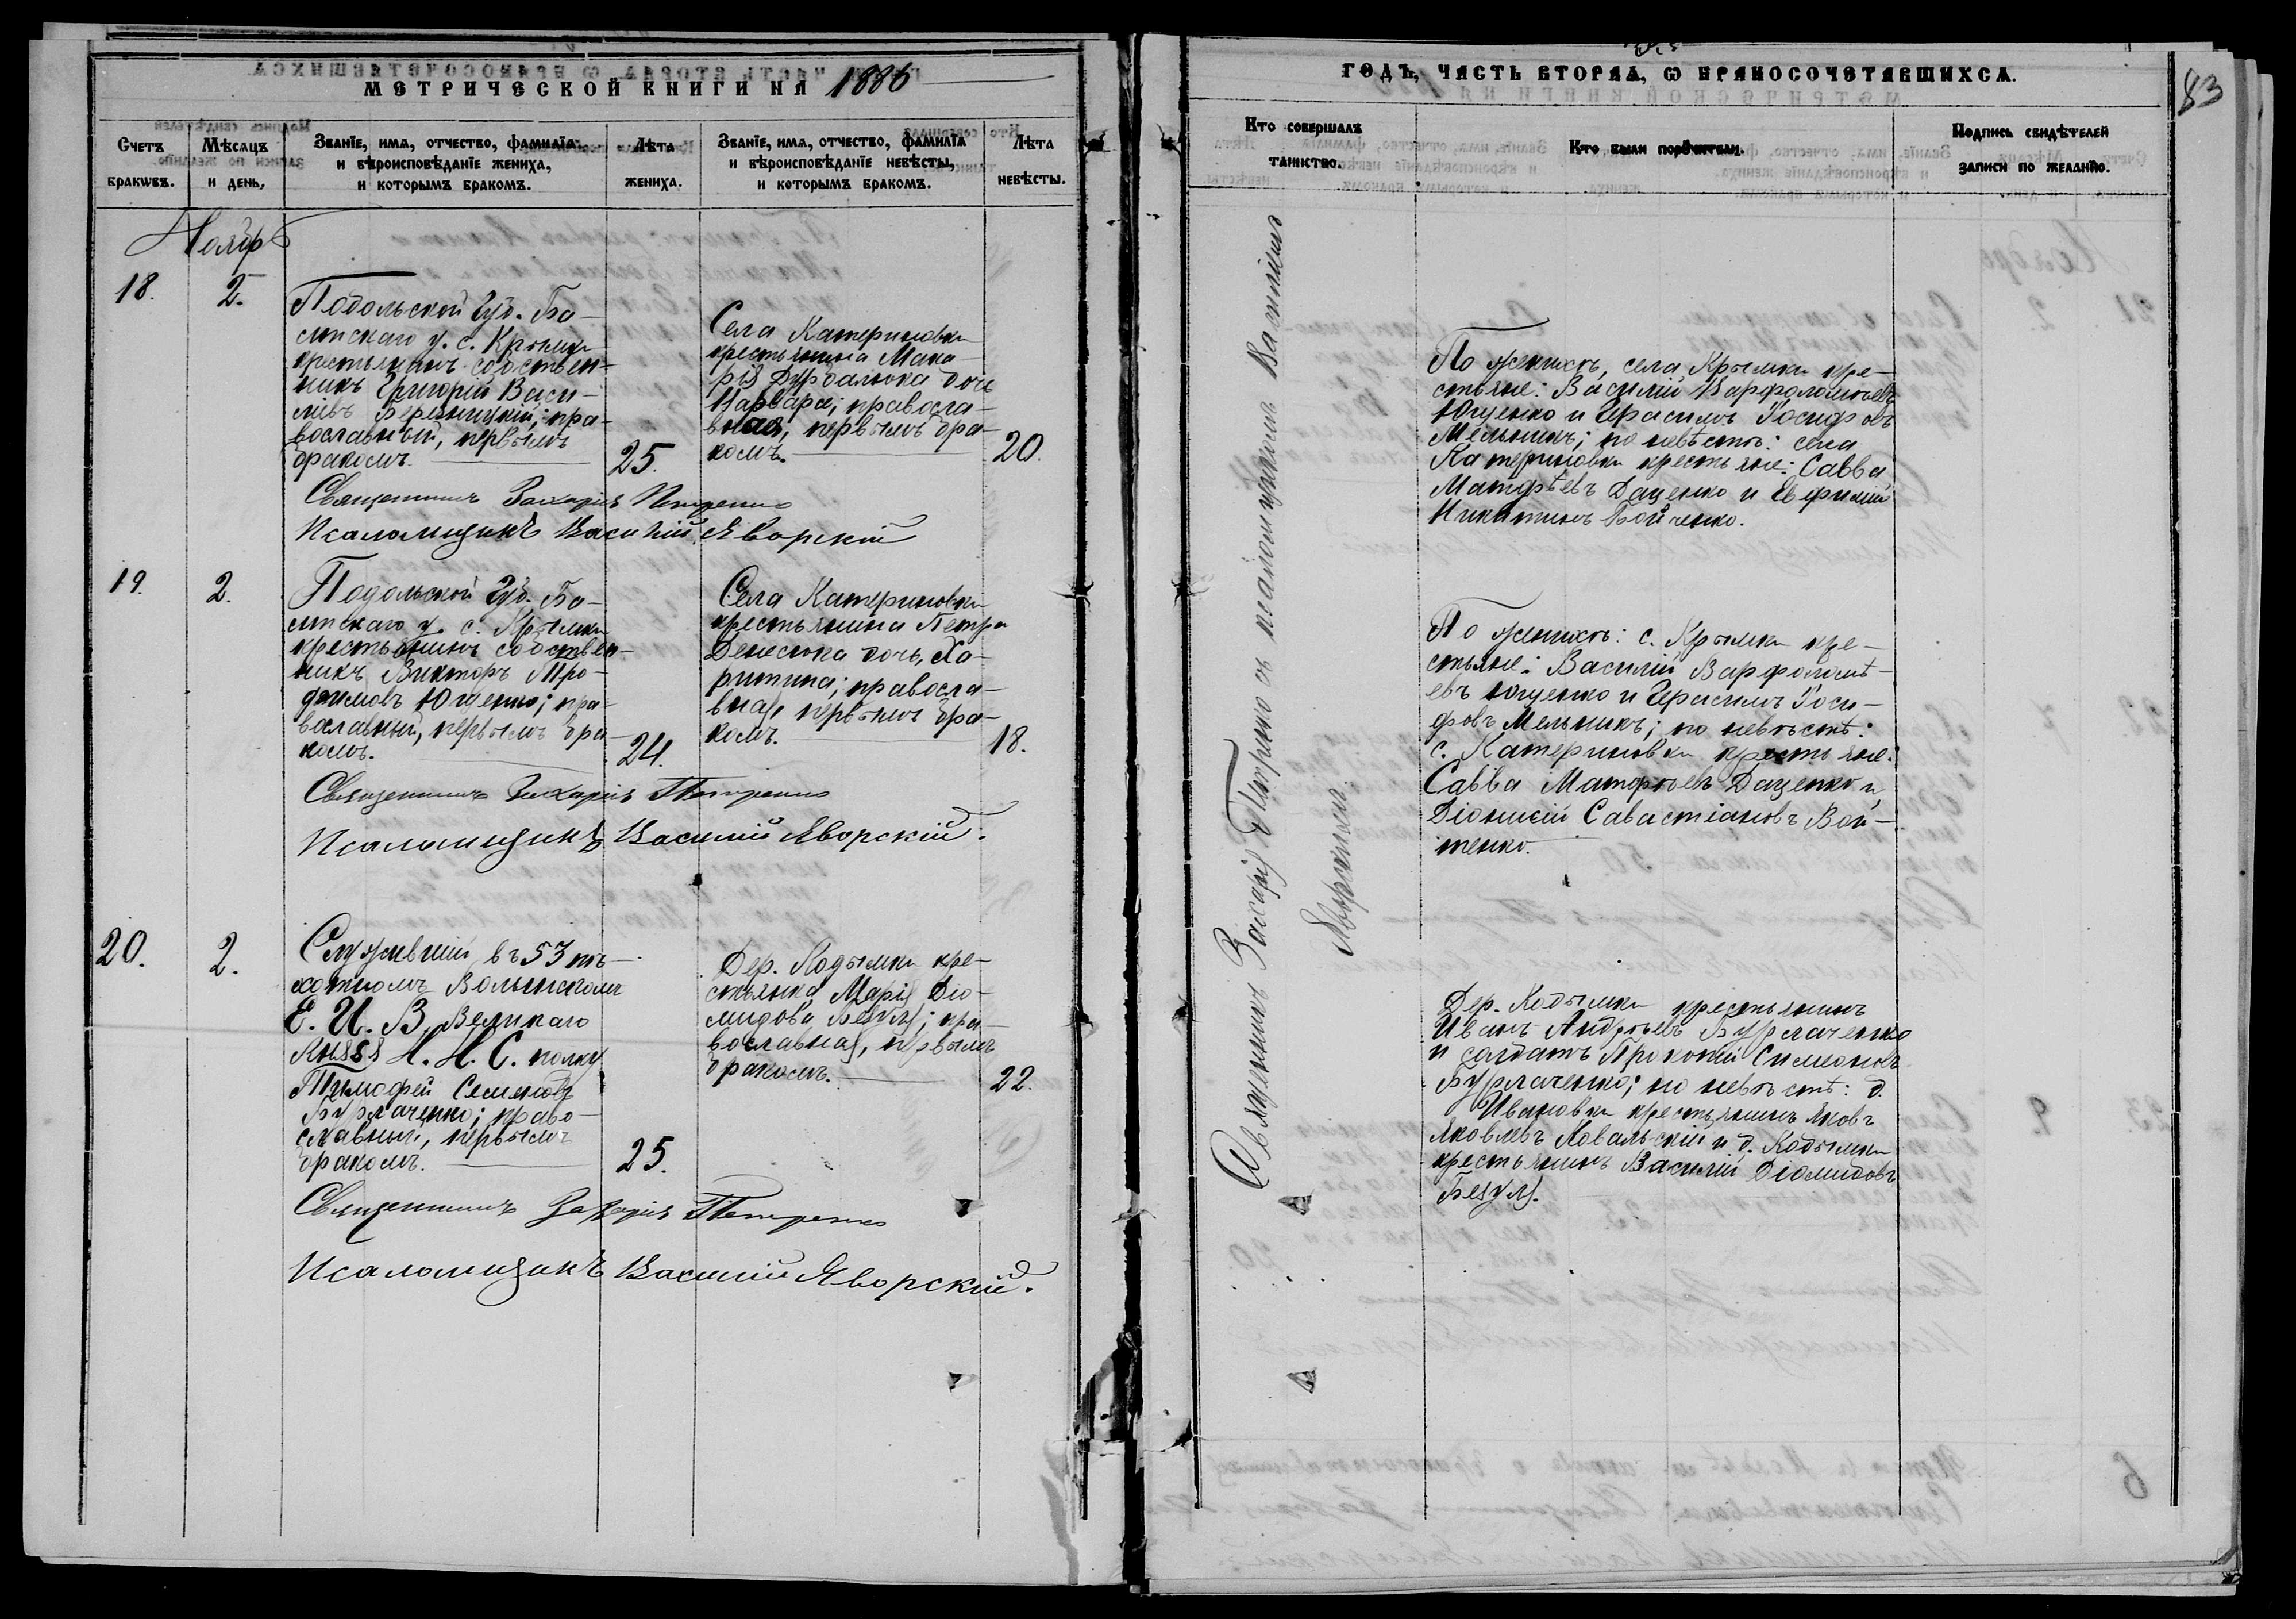 МЕТРИЧЕСКОЙ КНИГИ НА 1886
Счетъ браковъ.
Мѣсяцъ и день.
Званїе, имя, отчество, фамилїя, и вѣроисповѣданїе жениха, и которымъ бракомъ.
Лѣта жениха.
Званїе, имя, отчество, фамилїя и вѣроисповѣданїе невѣсты, и которымъ бракомъ.
Лѣта невѣсты.
Ноябр
18.
2.
Подольской Губ. Ба-
лтскаго у. с. Крымки
крестьянинъ собствен-
никъ Григорій Васи-
ліевъ Березницкій; пра-
вославный, первымъ
бракомъ.
25.
Села Катериновки
крестьянина Мака-
рія Дурбалюка дочь
Варвара; правосла-
вная, первымъ бра-
комъ.
20.
Священникъ Захарія Петренко
Псаломщикъ Василій Яворскій
19.
2.
Подольской Губ. Ба-
лтскаго у. с. Крымки
крестьянинъ собствен-
никъ Викторъ Тро-
фимовъ Ющенко; пра-
вославный, первымъ бра-
комъ.
24.
Села Катериновки
крестьянина Петра
Денесюка дочь, Ха-
ритина; правосла-
вная, первымъ бра-
комъ.
18.
Священникъ Захарія Петренко
Псаломщикъ Василій Яворскій.
20.
2.
Служившій въ 53 пѣ-
хотномъ Волынскомъ
Е. И. В. Великаго
Князя Н. Н. С. полку
Тимофей Семеновъ
Бурлаченко; право-
славный, первымъ
бракомъ.
25.
Дер. Кодымки кре-
стьянка Марія Діо-
мидова Безуля; пра-
вославная, первымъ
бракомъ.
22.
Священникъ Захарія Петренко
Псаломщикъ Василій Яворскій.
ГОДЪ, ЧАСТЬ ВТОРАЯ, Ѡ БРАКОСОЧЕТАВШИХСЯ.
83
Кто совершалъ таинство.
Кто были поручители.
Подпись свидѣтелей записи по желанїю.
Священникъ Захарія Петренко съ псаломщикомъ Василіемъ
Яворскимъ.
По женихѣ, села Крымки кре-
стьяне: Василій Варфоломѣевъ
Ющенко и Герасимъ Іосифовъ
Мельникъ; по невѣстѣ: села
Катериновки крестьяне: Савва
Матфѣевъ Даценко и Евфимій
Никитинъ Бойченко.
По женихѣ: с. Крымки кре-
стьяне: Василій Варфоломѣ-
евъ Ющенко и Герасимъ Іоси-
фовъ Мельникъ; по невѣстѣ:
с. Катериновки крестьяне:
Савва Матфѣевъ Даценко и
Діонисій Савастіановъ Вой-
тенко.
Дер. Кодымки крестьянинъ
Иванъ Андреевъ Бурлаченко
и солдатъ Прокопій Симеоновъ
Бурлаченко; по невѣстѣ: д.
Ивановки крестьянинъ Яковъ
Яковлевъ Ковальскій и д. Кодымки
крестьянинъ Василій Діомидовъ
Безуля.